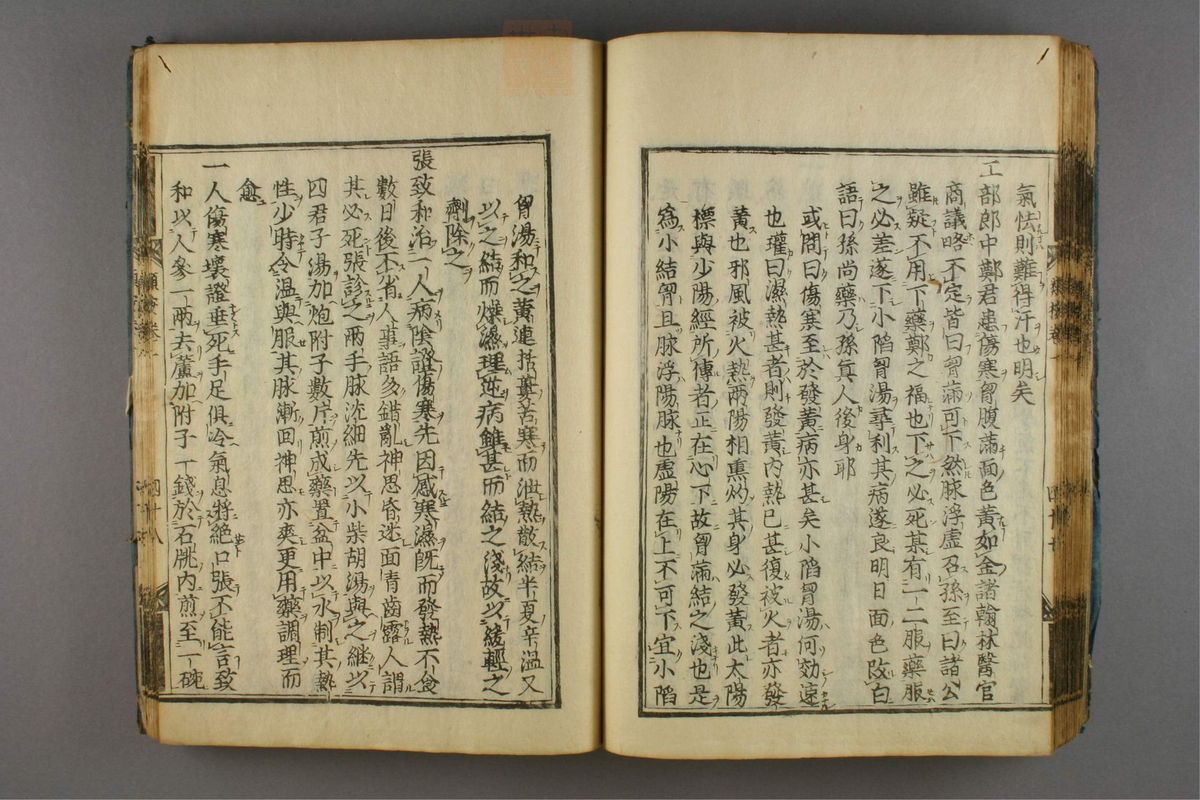 氣怯則難得汗也明矣
工部郎中鄭君患傷寒胷腹滿面色黃如金諸翰林醫官
商議略不定皆曰胷滿可下然脉浮虛召孫至曰諸公
雖疑不用下藥鄭之福也下之必死某有一二服藥服
之必差遂下小陷胷湯尋利其病遂良明日面色改白
語曰孫尚藥乃孫真人後身耶
或問曰傷寒至於發黃病亦甚矣小陷胷湯何効速
也瓘曰濕熱甚者則發黃內熱已甚復被火者亦發
黃也邪風被火熱兩陽相熏灼其身必發黃此太陽
標與少陽經所傳者正在心下故胷滿結之淺也是
為小結胷且脉浮陽脉也虛陽在上不可下宜小陷
胷湯和之黃連栝蔞苦寒而泄熱散結半夏辛溫又
以之結而燥濕理逆病雖甚而結之淺故以緩輕之
劑除之
張致和治一人病陰證傷寒先因感寒濕既而發熱不食
數日後不省人事語多錯亂神思昏迷面青齒露人謂
其必死張診之兩手脉沈細先以小柴胡湯與之繼以
四君子湯加炮附子數片煎成藥置盆中以水制其熱
性少時令溫與服其脉漸回神思亦爽更用藥調理而
愈
一人傷寒壞證垂死手足俱冷氣息將絕口張不能言致
和以人參一兩去蘆加附子一錢於石銚內煎至一碗
四十八